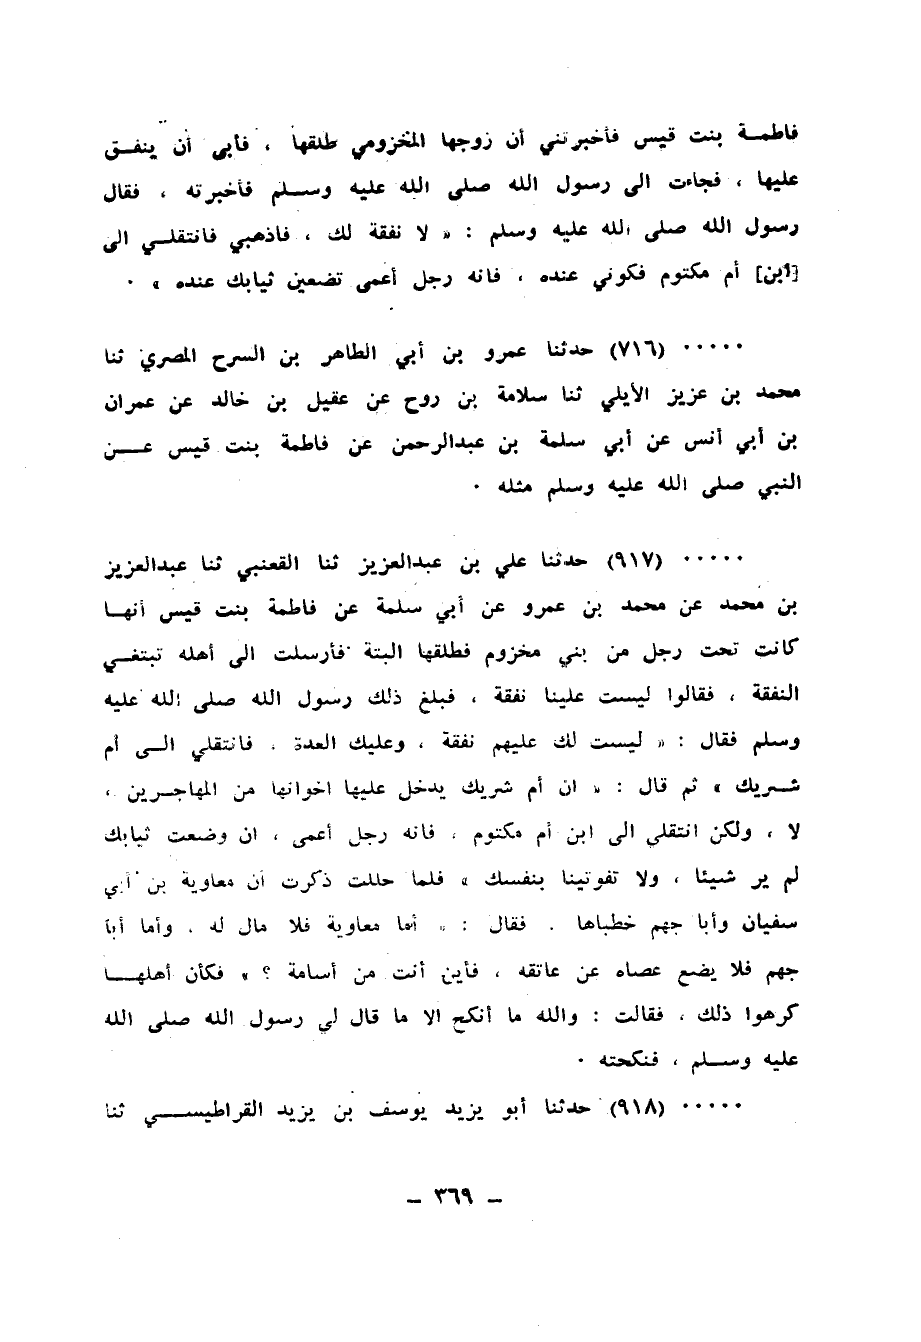 فاطمــة بنت قيس فأخبرتني أن زوجها المخزومي طلقها ، فأبى أن ينفــق
عليها ، فجاءت الى رسول الله صلى الله عليه وســلم فأخبرته ، فقال
رسول الله صلى الله عليه وسلم : « لا نفقة لك ، فاذهبي فانتقلــي الى
[ابن] أم مكتوم فكوني عنده ، فانه رجل أعمى تضعين ثيابك عنده » ٠
٠٠٠٠٠ (٧١٦) حدثنا عمرو بن أبي الطاهر بن السرح المصري ثنا
محمد بن عزيز الأيلي ثنا سلامة بن روح عن عقيل بن خالد عن عمران
بن أبي أنس عن أبي سلمة بن عبدالرحمن عن فاطمة بنت قيس عــن
النبي صلى الله عليه وسلم مثله ٠
٠٠٠٠٠ (٩١٧) حدثنا علي بن عبدالعزيز ثنا القعنبي ثنا عبدالعزيز
بن محمد عن محمد بن عمرو عن أبي سلمة عن فاطمة بنت قيس أنهــا
كانت تحت رجل من بني مخزوم فطلقها البتة فأرسلت الى أهله تبتغــي
النفقة ، فقالوا ليست علينا نفقة ، فبلغ ذلك رسول الله صلى الله عليه
وسلم فقال : « ليست لك عليهم نفقة ، وعليك العدة ، فانتقلي الــى أم
شــريك » ثم قال : « ان أم شريك يدخل عليها اخوانها من المهاجــرين ،
لا ، ولكن انتقلي الى ابن أم مكتوم ، فانه رجل أعمى ، ان وضعت ثيابك
لم ير شيئا ، ولا تفوتينا بنفسك » فلما حللت ذكرت أن معاوية بن أبي
سفيان وأبا جهم خطباها . فقال : « أما معاوية فلا مال له ، وأما أبا
جهم فلا يضع عصاه عن عاتقه ، فأين أنت من أسامة ؟ » فكأن أهلهــا
كرهوا ذلك ، فقالت : والله ما أنكح الا ما قال لي رسول الله صلى الله
عليه وســلم ، فنكحته ٠
٠٠٠٠٠ (٩١٨) حدثنا أبو يزيد يوسف بن يزيد القراطيســي ثنا
– ٣٦٩ –